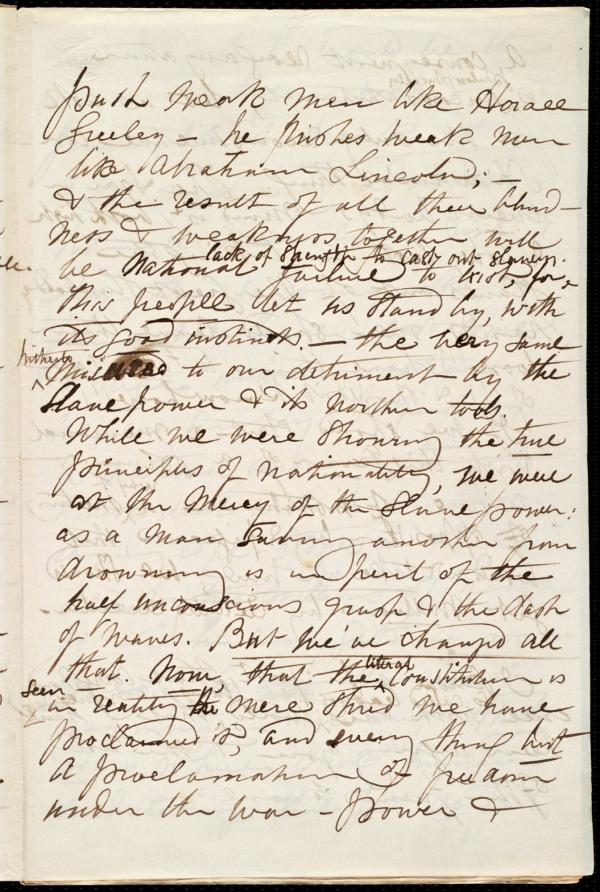 push weak men like Horace
Greeley — he pushes weak men
like Abraham Lincoln; —
& the result of all their blind-
ness & weakness together will
lack of strength to cast out slavery.
be National failure to exist, for,
this people let us stand by, with
its good instincts — the very same
hitherto
misused to our detriment by the
Slave power & its Northern tools.
While we were showing the true
principles of nationality, we were
at the mercy of the Slave power:
as a man saving another from
drowning is in peril of the
half unconscious grasp & the dash
of waves. But we've changed all
literal
that. Now, that the Constitution is
seen
in reality the mere shred we have
proclaimed it, and every thing but
a proclamation of freedom
under the war-power &